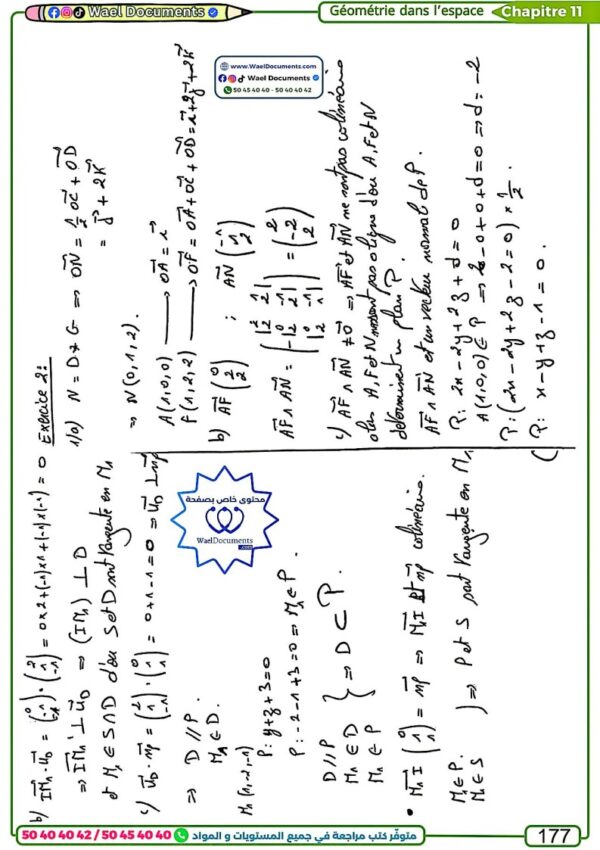 Wael Documents
Géométrie dans l'espace
Chapitre 11
www.WaelDocuments.com
Wael Documents
50 45 40 40 - 50 40 40 42
b) IM₁→ . u_D→ = (0 -1 -1) . (2 1 -1) = 0×2+(-1)×1+(-1)×(-1) = 0
⇒ IM₁→ ⊥ u_D→ ⇒ (IM₁) ⊥ D
et M₁ ∈ S∩D d'où S et D sont tangente en M₁
c) u_D→ . n_P→ = (2 1 -1) . (0 1 1) = 0+1-1 = 0 ⇒ u_D→ ⊥ n_P→
⇒ D // P.
M₁ ∈ D.
M₁ (1,-2,-1)
P: y+z+3=0
P: -2-1+3=0 ⇒ M₁ ∈ P.
D // P
M₁ ∈ D
M₁ ∈ P
} ⇒ D ⊂ P.
• M₁I→ (0 1 1) = n_P→ ⇒ M₁I→ et n_P→ colinéaire.
M₁ ∈ P.
M₁ ∈ S
) ⇒ P et S sont tangente en M₁
Exercice 2:
1/a) N = D * G ⇒ ON→ = 1/2 OC→ + OD→
= j→ + 2k→
⇒ N(0,1,2).
A(1,0,0) → OA→ = i→
F(1,2,2) → OF→ = OA→ + OC→ + OD→ = i→+2j→+2k→
b) AF→ (0 2 2) ; AN→ (-1 1 2)
AF→ ∧ AN→ = (|2 1 2 2| -|0 -1 2 2| |0 -1 2 1|) = (2 -2 2)
c) AF→ ∧ AN→ ≠ 0→ ⇒ AF→ et AN→ ne sont pas colinéaires
alors A, F et N ne sont pas aligné d'où A, F et N
déterminent un plan P.
AF→ ∧ AN→ est un vecteur normal de P.
P: 2x - 2y + 2z + d = 0
A(1,0,0) ∈ P ⇒ 2-0+0+d=0 ⇒ d=-2
P: (2x-2y+2z-2=0) × 1/2.
(P: x-y+z-1=0.
محتوى خاص بصفحة
WaelDocuments
.com
50 40 40 42 / 50 45 40 40
متوفّر كتب مراجعة في جميع المستويات و المواد
177